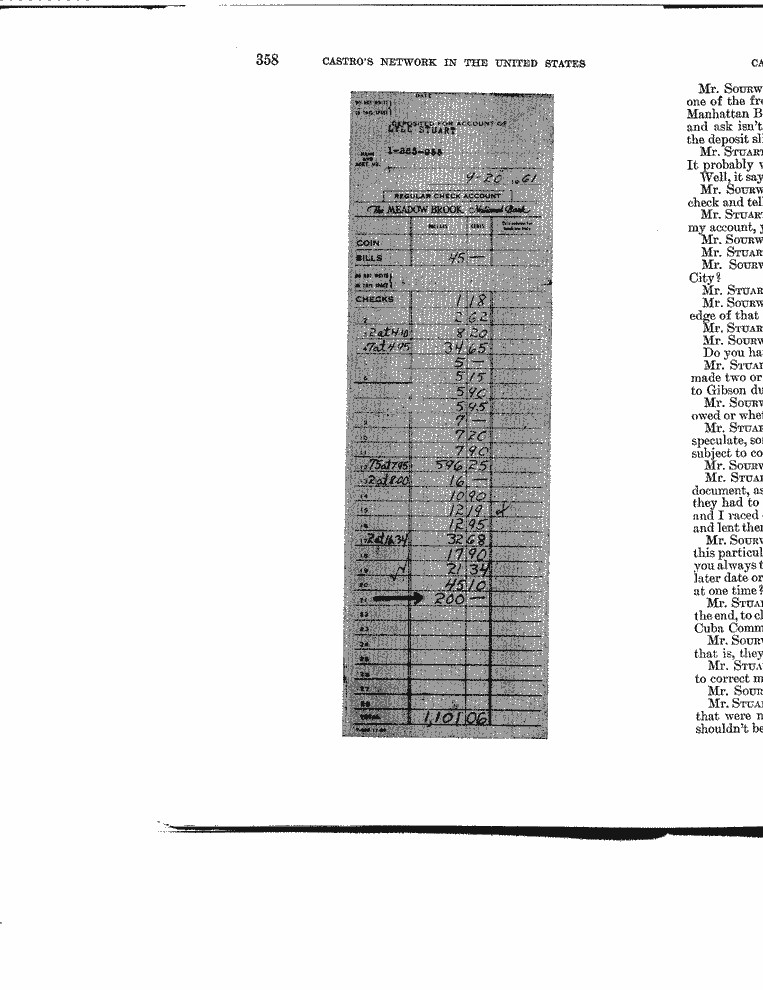 358 CASTRO'S NETWORK IN THE UNITED STATES
DATE
DO NOT WRITE
IN THIS SPACE
DEPOSITED FOR ACCOUNT OF
LYLE STUART
NAME
AND
ACCT. NO.
4-20 1961
REGULAR CHECK ACCOUNT
The MEADOW BROOK National Bank
DOLLARS CENTS
COIN
BILLS 45 —
DO NOT WRITE
IN THIS SPACE
CHECKS 1 18
2 2 62
2 at 4.10 8 20
7 at 4.95 34 65
5 —
6 5 15
5 90
5 95
9 7 —
10 7 20
11 7 90
12 75 at 7.95 596 25
13 2 at 8.00 16 —
14 10 90
15 12 19
16 12 95
17 2 at 16.34 32 68
18 17 90
19 21 34
20 45 10
21 200 —
22
23
24
25
26
27
28
TOTAL 1,101 06
CA
Mr. SOURW
one of the fre
Manhattan B
and ask isn't
the deposit sl
Mr. STUART
It probably v
Well, it say
Mr. SOURW
check and tel
Mr. STUAR
my account, y
Mr. SOURW
Mr. STUAR
Mr. SOURW
City?
Mr. STUAR
Mr. SOURW
edge of that
Mr. STUAR
Mr. SOURW
Do you ha
Mr. STUAR
made two or
to Gibson du
Mr. SOURW
owed or whe
Mr. STUAR
speculate, so
subject to co
Mr. SOURW
Mr. STUA
document, as
they had to
and I raced
and lent ther
Mr. SOURW
this particul
you always t
later date or
at one time?
Mr. STUAI
the end, to cl
Cuba Comm
Mr. SOUR
that is, they
Mr. STUA
to correct m
Mr. SOUR
Mr. STUAI
that were n
shouldn't be